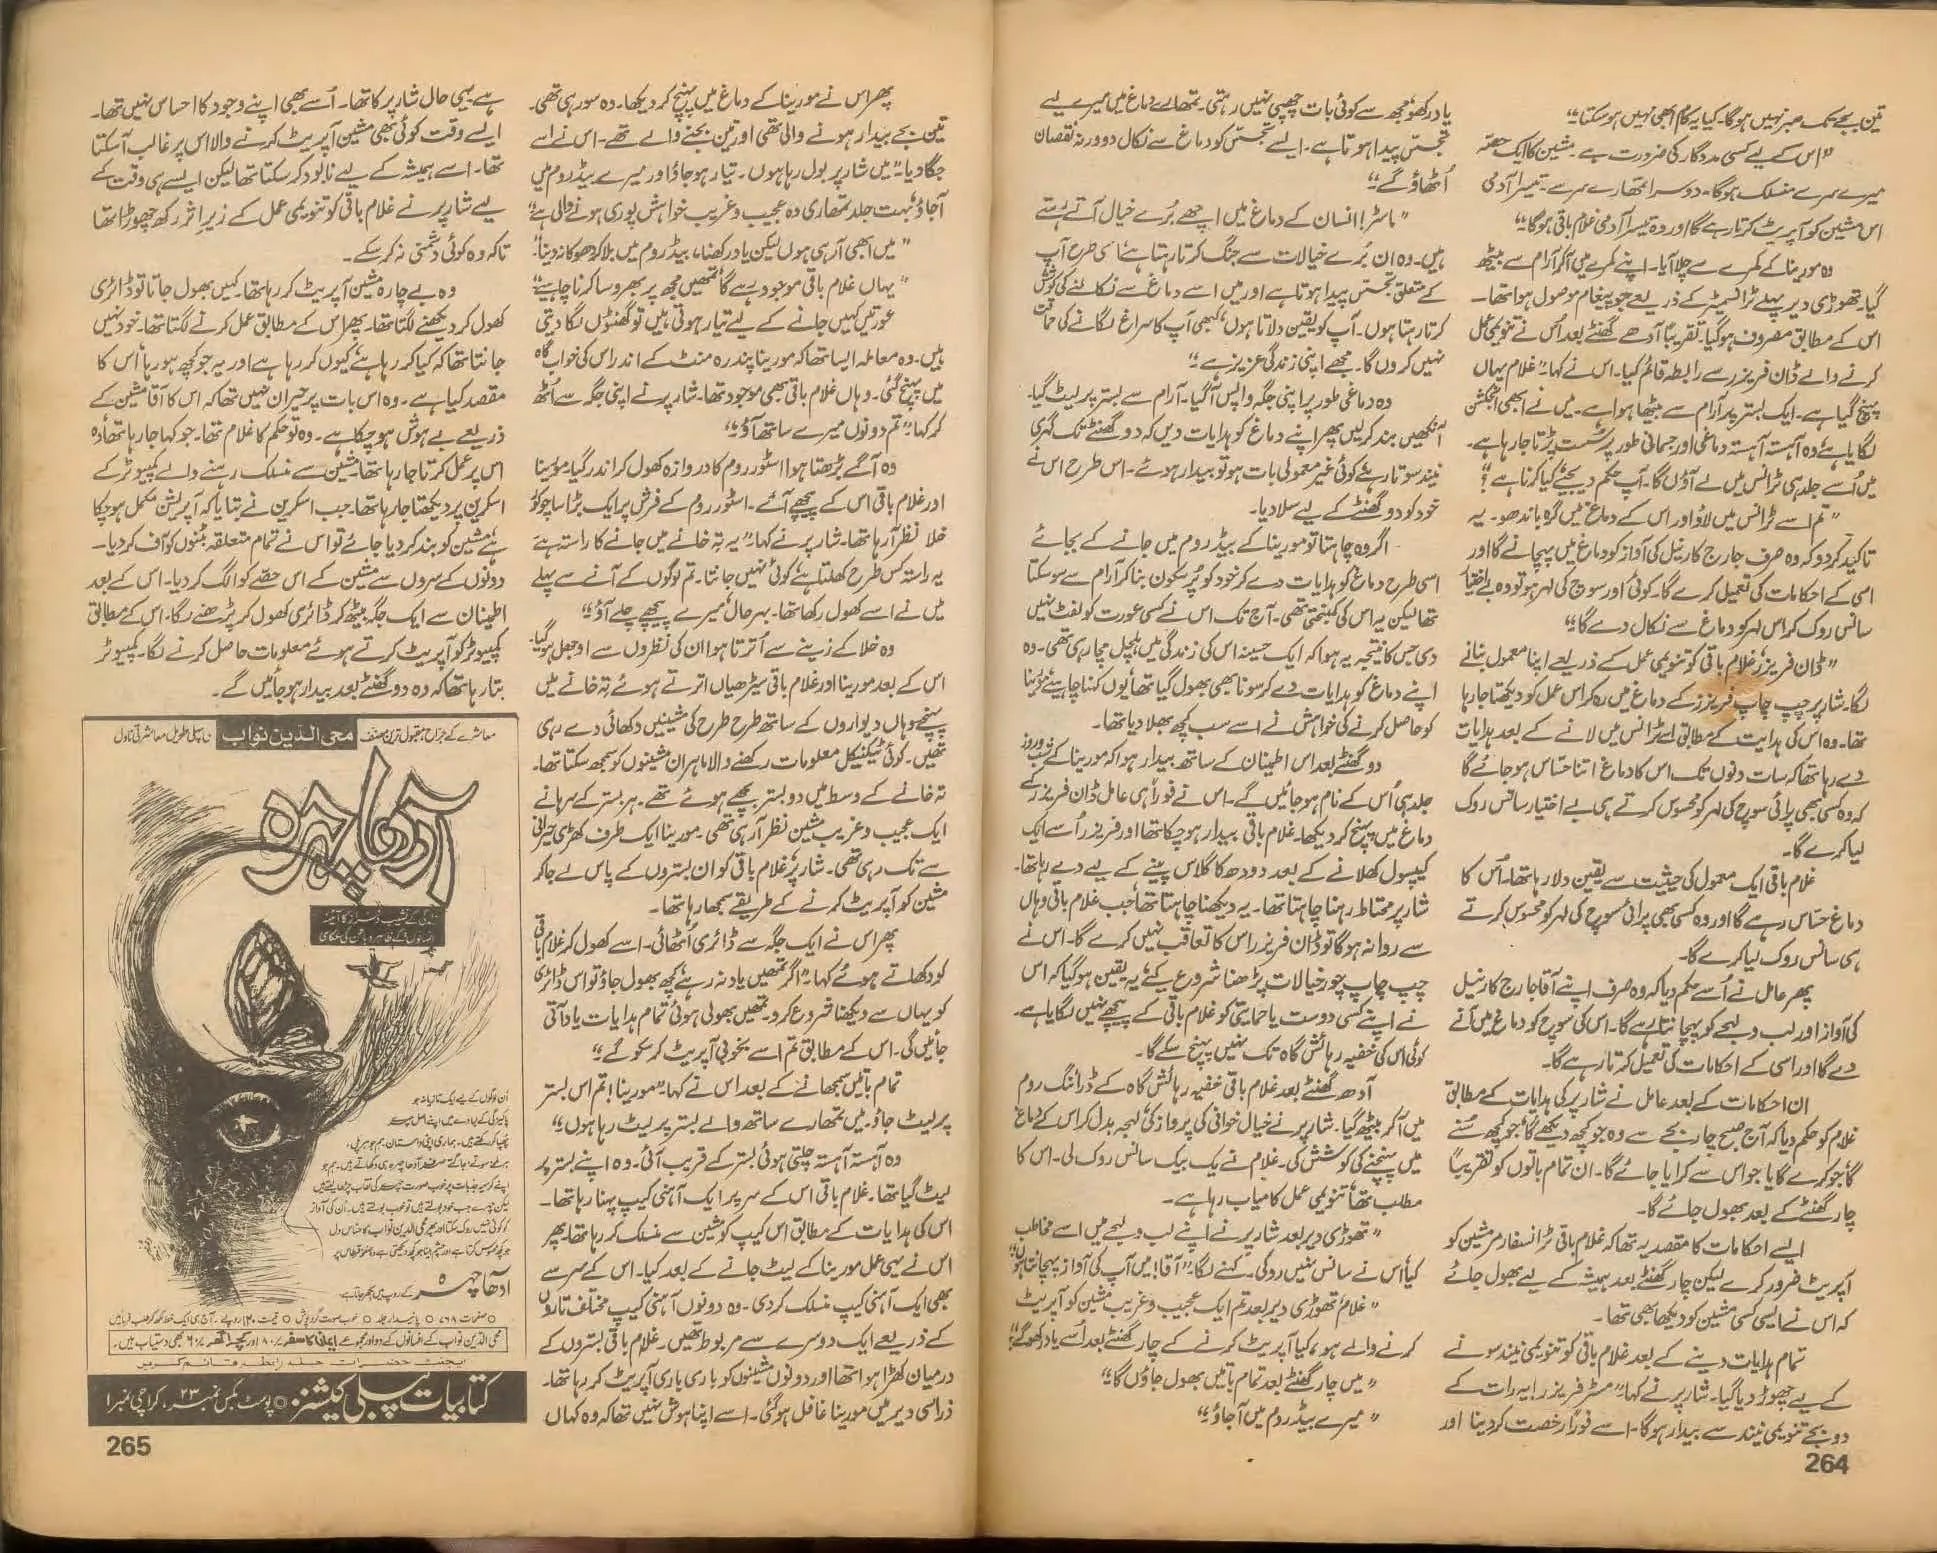 تین بجے تک صبر نہیں ہوگا۔ کیا یہ کام ابھی نہیں ہو سکتا؟"
"اس کے لیے کسی مددگار کی ضرورت ہے۔ مشین کا ایک حصّہ
میرے سر سے منسلک ہوگا۔ دوسرا تمھارے سر سے۔ تیسرا آدمی
اس مشین کو آپریٹ کرتا رہے گا اور وہ تیسرا آدمی غلام باقی ہوگا۔"
وہ مورینا کے کمرے سے چلا آیا۔ اپنے کمرے میں آکر آرام سے بیٹھ
گیا۔ تھوڑی دیر پہلے ٹرانسمیٹر کے ذریعے جو پیغام موصول ہوا تھا۔
اس کے مطابق مصروف ہو گیا۔ تقریباً آدھے گھنٹے بعد اُس نے تنویمی عمل
کرنے والے ڈان فریزر سے رابطہ قائم کیا۔ اس نے کہا۔ "غلام یہاں
پہنچ گیا ہے۔ ایک بستر پر آرام سے بیٹھا ہوا ہے۔ میں نے ابھی انجکشن
لگایا ہے۔ وہ آہستہ آہستہ دماغی اور جسمانی طور پر سُست پڑتا جا رہا ہے۔
میں اُسے جلد ہی ٹرانس میں لے آؤں گا۔ آپ حکم دیجئے کیا کرنا ہے؟"
"تم اسے ٹرانس میں لاؤ اور اس کے دماغ میں گرہ باندھو۔ یہ
تاکید کر دو کہ وہ صرف جارج کارنیل کی آواز کو دماغ میں پہچانے گا اور
اسی کے احکامات کی تعمیل کرے گا۔ کوئی اور سوچ کی لہر ہو تو وہ بے اختیار
سانس روک کر اس لہر کو دماغ سے نکال دے گا۔"
ڈان فریزر، غلام باقی کو تنویمی عمل کے ذریعے اپنا معمول بنانے
لگا۔ شارپر چپ چاپ فریزر کے دماغ میں رہ کر اس عمل کو دیکھتا جا رہا
تھا۔ وہ اس کی ہدایت کے مطابق اسے ٹرانس میں لانے کے بعد ہدایات
دے رہا تھا کہ سات دنوں تک اس کا دماغ اتنا حسّاس ہو جائے گا
کہ وہ کسی بھی پرائی سوچ کی لہر کو محسوس کرتے ہی بے اختیار سانس روک
لیا کرے گا۔
غلام باقی ایک معمول کی حیثیت سے یقین دلا رہا تھا۔ اُس کا
دماغ حسّاس رہے گا اور وہ کسی بھی پرائی سوچ کی لہر کو محسوس کرتے
ہی سانس روک لیا کرے گا۔
پھر عامل نے اُسے حکم دیا کہ وہ صرف اپنے آقا جارج کارنیل
کی آواز اور لب و لہجے کو پہچانتا رہے گا۔ اس کی سوچ کو دماغ میں آنے
دے گا اور اسی کے احکامات کی تعمیل کرتا رہے گا۔
ان احکامات کے بعد عامل نے شارپر کی ہدایات کے مطابق
غلام کو حکم دیا کہ آج صبح چار بجے سے وہ جو کچھ دیکھے گا، جو کچھ سُنے
گا، جو کرے گا یا جو اس سے کرایا جائے گا۔ ان تمام باتوں کو تقریباً
چار گھنٹے کے بعد بھول جائے گا۔
ایسے احکامات کا مقصد یہ تھا کہ غلام باقی ٹرانسفارمر مشین کو
آپریٹ ضرور کرے لیکن چار گھنٹے بعد ہمیشہ کے لیے بھول جائے
کہ اس نے ایسی کسی مشین کو دیکھا بھی تھا۔
تمام ہدایات دینے کے بعد غلام باقی کو تنویمی نیند سونے
کے لیے چھوڑ دیا گیا۔ شارپر نے کہا۔ "مسٹر فریزر! یہ رات کے
دو بجے تنویمی نیند سے بیدار ہوگا۔ اسے فوراً رخصت کر دینا اور
264
یاد رکھو، مجھ سے کوئی بات چھپی نہیں رہتی۔ تمھارے دماغ میں میرے لیے
تجسّس پیدا ہوتا ہے۔ ایسے تجسّس کو دماغ سے نکال دو ورنہ نقصان
اُٹھاؤ گے۔"
"ماسٹر! انسان کے دماغ میں اچھے بُرے خیال آتے رہتے
ہیں۔ وہ ان بُرے خیالات سے جنگ کرتا رہتا ہے، اسی طرح آپ
کے متعلق تجسّس پیدا ہوتا ہے اور میں اسے دماغ سے نکالنے کی کوشش
کرتا رہتا ہوں۔ آپ کو یقین دلاتا ہوں، کبھی آپ کا سراغ لگانے کی حماقت
نہیں کروں گا۔ مجھے اپنی زندگی عزیز ہے۔"
وہ دماغی طور پر اپنی جگہ واپس آگیا۔ آرام سے بستر پر لیٹ گیا۔
آنکھیں بند کر لیں پھر اپنے دماغ کو ہدایات دیں کہ دو گھنٹے تک گہری
نیند سوتا رہے، کوئی غیر معمولی بات ہو تو بیدار ہوئے۔ اس طرح اس نے
خود کو دو گھنٹے کے لیے سلا دیا۔
اگر وہ چاہتا تو مورینا کے بیڈروم میں جانے کے بجائے
اسی طرح دماغ کو ہدایات دے کر خود کو پُرسکون بنا کر آرام سے سو سکتا
تھا لیکن یہ اس کی کمبختی تھی۔ آج تک اس نے کسی عورت کو لفٹ نہیں
دی جس کا نتیجہ یہ ہوا کہ ایک حسینہ اس کی زندگی میں ہلچل مچا رہی تھی۔ وہ
اپنے دماغ کو ہدایات دے کر سونا بھی بھول گیا تھا، یوں کہنا چاہیے مورینا
کو حاصل کرنے کی خواہش نے اسے سب کچھ بھلا دیا تھا۔
دو گھنٹے بعد اس اطمینان کے ساتھ بیدار ہوا کہ مورینا کے شب و روز
جلد ہی اُس کے نام ہو جائیں گے۔ اس نے فوراً ہی عامل ڈان فریزر کے
دماغ میں پہنچ کر دیکھا۔ غلام باقی بیدار ہو چکا تھا اور فریزر اُسے ایک
کیپسول کھلانے کے بعد دودھ کا گلاس پینے کے لیے دے رہا تھا۔
شارپر محتاط رہنا چاہتا تھا۔ یہ دیکھنا چاہتا تھا، جب غلام باقی وہاں
سے روانہ ہوگا تو ڈان فریزر اس کا تعاقب نہیں کرے گا۔ اس نے
چپ چاپ چور خیالات پڑھنا شروع کیے، یہ یقین ہو گیا کہ اس
نے اپنے کسی دوست یا حمایتی کو غلام باقی کے پیچھے نہیں لگایا ہے۔
کوئی اس کی خفیہ رہائش گاہ تک نہیں پہنچ سکے گا۔
آدھ گھنٹے بعد غلام باقی خفیہ رہائش گاہ کے ڈرائنگ روم
میں آکر بیٹھ گیا۔ شارپر نے خیال خوانی کی پرواز کی، لہجہ بدل کر اس کے دماغ
میں پہنچنے کی کوشش کی۔ غلام نے یک بیک سانس روک لی۔ اس کا
مطلب تھا، تنویمی عمل کامیاب رہا ہے۔
تھوڑی دیر بعد شارپر نے اپنے لب و لہجے میں اسے مخاطب
کیا، اُس نے سانس نہیں روکی۔ کہنے لگا۔ "آقا! میں آپ کی آواز پہچانتا ہوں۔"
"غلام! تھوڑی دیر بعد تم ایک عجیب و غریب مشین کو آپریٹ
کرنے والے ہو، کیا آپریٹ کرنے کے چار گھنٹے بعد اُسے یاد رکھو گے؟"
"میں چار گھنٹے بعد تمام باتیں بھول جاؤں گا۔"
"میرے بیڈروم میں آجاؤ۔"
پھر اس نے مورینا کے دماغ میں پہنچ کر دیکھا۔ وہ سو رہی تھی۔
تین بجے بیدار ہونے والی تھی اور تین بجنے والے تھے۔ اس نے اسے
جگا دیا۔ "میں شارپر بول رہا ہوں۔ تیار ہو جاؤ اور میرے بیڈروم میں
آجاؤ، بہت جلد تمھاری وہ عجیب و غریب خواہش پوری ہونے والی ہے۔"
"میں ابھی آرہی ہوں لیکن یاد رکھنا، بیڈروم میں بلا کر دھوکا نہ دینا۔"
"یہاں غلام باقی موجود رہے گا، تمھیں مجھ پر بھروسا کرنا چاہیے۔"
عورتیں کہیں جانے کے لیے تیار ہوتی ہیں تو گھنٹوں لگا دیتی
ہیں۔ وہ معاملہ ایسا تھا کہ مورینا پندرہ منٹ کے اندر اس کی خواب گاہ
میں پہنچ گئی۔ وہاں غلام باقی بھی موجود تھا۔ شارپر نے اپنی جگہ سے اُٹھ
کر کہا۔ "تم دونوں میرے ساتھ آؤ۔"
وہ آگے بڑھتا ہوا اسٹور روم کا دروازہ کھول کر اندر گیا۔ مورینا
اور غلام باقی اس کے پیچھے آئے۔ اسٹور روم کے فرش پر ایک بڑا سا چوکور
خلا نظر آرہا تھا۔ شارپر نے کہا۔ "یہ تہ خانے میں جانے کا راستہ ہے
یہ راستہ کس طرح کھلتا ہے، کوئی نہیں جانتا۔ تم لوگوں کے آنے سے پہلے
میں نے اسے کھول رکھا تھا۔ بہرحال، میرے پیچھے چلے آؤ۔"
وہ خلا کے زینے سے اُترتا ہوا ان کی نظروں سے اوجھل ہو گیا۔
اس کے بعد مورینا اور غلام باقی سیڑھیاں اترتے ہوئے تہ خانے میں
پہنچے، وہاں دیواروں کے ساتھ طرح طرح کی مشینیں دکھائی دے رہی
تھیں۔ کوئی ٹیکنیکل معلومات رکھنے والا ماہر ان مشینوں کو سمجھ سکتا تھا۔
تہ خانے کے وسط میں دو بستر بچھے ہوئے تھے۔ ہر بستر کے سرہانے
ایک عجیب و غریب مشین نظر آرہی تھی۔ مورینا ایک طرف کھڑی حیرانی
سے تک رہی تھی۔ شارپر، غلام باقی کو ان بستروں کے پاس لے جا کر
مشین کو آپریٹ کرنے کے طریقے سمجھا رہا تھا۔
پھر اس نے ایک جگہ سے ڈائری اُٹھائی۔ اسے کھول کر غلام باقی
کو دکھاتے ہوئے کہا۔ "اگر تمھیں یاد نہ رہے، کچھ بھول جاؤ تو اس ڈائری
کو یہاں سے دیکھنا شروع کر دو۔ تمھیں بھولی ہوئی تمام ہدایات یاد آتی
جائیں گی۔ اس کے مطابق تم اسے بخوبی آپریٹ کر سکو گے۔"
تمام باتیں سمجھانے کے بعد اس نے کہا۔ "مورینا! تم اس بستر
پر لیٹ جاؤ، میں تمھارے ساتھ والے بستر پر لیٹ رہا ہوں۔"
وہ آہستہ آہستہ چلتی ہوئی بستر کے قریب آئی۔ وہ اپنے بستر پر
لیٹ گیا تھا۔ غلام باقی اس کے سر پر ایک آہنی کیپ پہنا رہا تھا۔
اس کی ہدایات کے مطابق اس کیپ کو مشین سے منسلک کر رہا تھا۔ پھر
اس نے یہی عمل مورینا کے لیٹ جانے کے بعد کیا۔ اس کے سر سے
بھی ایک آہنی کیپ منسلک کر دی۔ وہ دونوں آہنی کیپ مختلف تاروں
کے ذریعے ایک دوسرے سے مربوط تھیں۔ غلام باقی بستروں کے
درمیان کھڑا ہوا تھا اور دونوں مشینوں کو باری باری آپریٹ کر رہا تھا۔
ذرا سی دیر میں مورینا غافل ہو گئی۔ اسے اپنا ہوش نہیں تھا کہ وہ کہاں
ہے یہی حال شارپر کا تھا۔ اُسے بھی اپنے وجود کا احساس نہیں تھا۔
ایسے وقت کوئی بھی مشین آپریٹ کرنے والا اس پر غالب آسکتا
تھا۔ اسے ہمیشہ کے لیے نابود کر سکتا تھا لیکن ایسے ہی وقت کے
لیے شارپر نے غلام باقی کو تنویمی عمل کے زیرِ اثر رکھ چھوڑا تھا
تاکہ وہ کوئی دشمنی نہ کر سکے۔
وہ بے چارہ مشین آپریٹ کر رہا تھا۔ کہیں بھول جاتا تو ڈائری
کھول کر دیکھنے لگتا تھا۔ پھر اس کے مطابق عمل کرنے لگتا تھا۔ خود نہیں
جانتا تھا کہ کیا کر رہا ہے، کیوں کر رہا ہے اور یہ جو کچھ ہو رہا، اُس کا
مقصد کیا ہے۔ وہ اس بات پر حیران نہیں تھا کہ اس کا آقا مشین کے
ذریعے بے ہوش ہو چکا ہے۔ وہ تو حکم کا غلام تھا۔ جو کہا جا رہا تھا، وہ
اس پر عمل کرتا جا رہا تھا۔ مشین سے منسلک رہنے والے کمپیوٹر کے
اسکرین پر دیکھتا جا رہا تھا۔ جب اسکرین نے بتایا کہ آپریشن مکمل ہو چکا
ہے، مشین کو بند کر دیا جائے تو اس نے تمام متعلقہ بٹنوں کو آف کر دیا۔
دونوں کے سروں سے مشین کے اس حصّے کو الگ کر دیا۔ اس کے بعد
اطمینان سے ایک جگہ بیٹھ کر ڈائری کھول کر پڑھنے لگا۔ اس کے مطابق
کمپیوٹر کو آپریٹ کرتے ہوئے معلومات حاصل کرنے لگا۔ کمپیوٹر
بتا رہا تھا کہ وہ دو گھنٹے بعد بیدار ہو جائیں گے۔
معاشرے کے جراح، مقبول ترین مصنف محی الدین نواب کی پہلی طویل معاشرتی ناول
آدھا چہرہ
اُن لوگوں کے لیے ایک تازیانہ جو
پاکیزگی کے لبادے میں اپنے اصل چہرے
آدھا چہرہ
صفحات ۷۶۸
کتابیات پبلی کیشنز پوسٹ بکس نمبر ۲۳، کراچی نمبر ۱
265